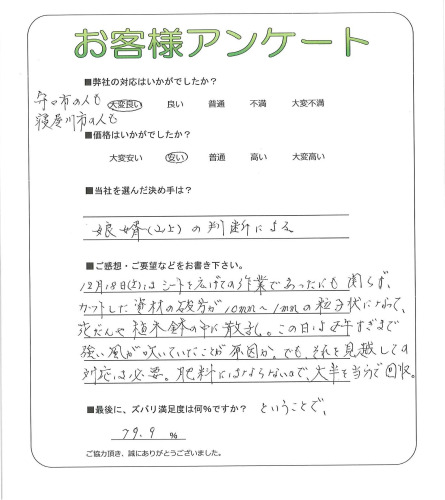 お客様アンケート
■弊社の対応はいかがでしたか?
守口市の人も
寝屋川市の人も
大変良い 良い 普通 不満 大変不満
■価格はいかがでしたか?
大変安い 安い 普通 高い 大変高い
■当社を選んだ決め手は?
娘婿(ムコ)の判断による
■ご感想・ご要望などをお書き下さい。
12月18日(土)はシートを広げての作業であったにも関らず、
カットした資材の破片が10mm~1mmの粒子状になって、
花だんや植木鉢の中に散乱。この日は正午すぎまで
強い風が吹いていたことが原因か。でも、それを見越しての
対応は必要。肥料にはならないので、大半を当方で回収。
■最後に、ズバリ満足度は何%ですか? ということで、
79.9 %
ご協力頂き、誠にありがとうございました。